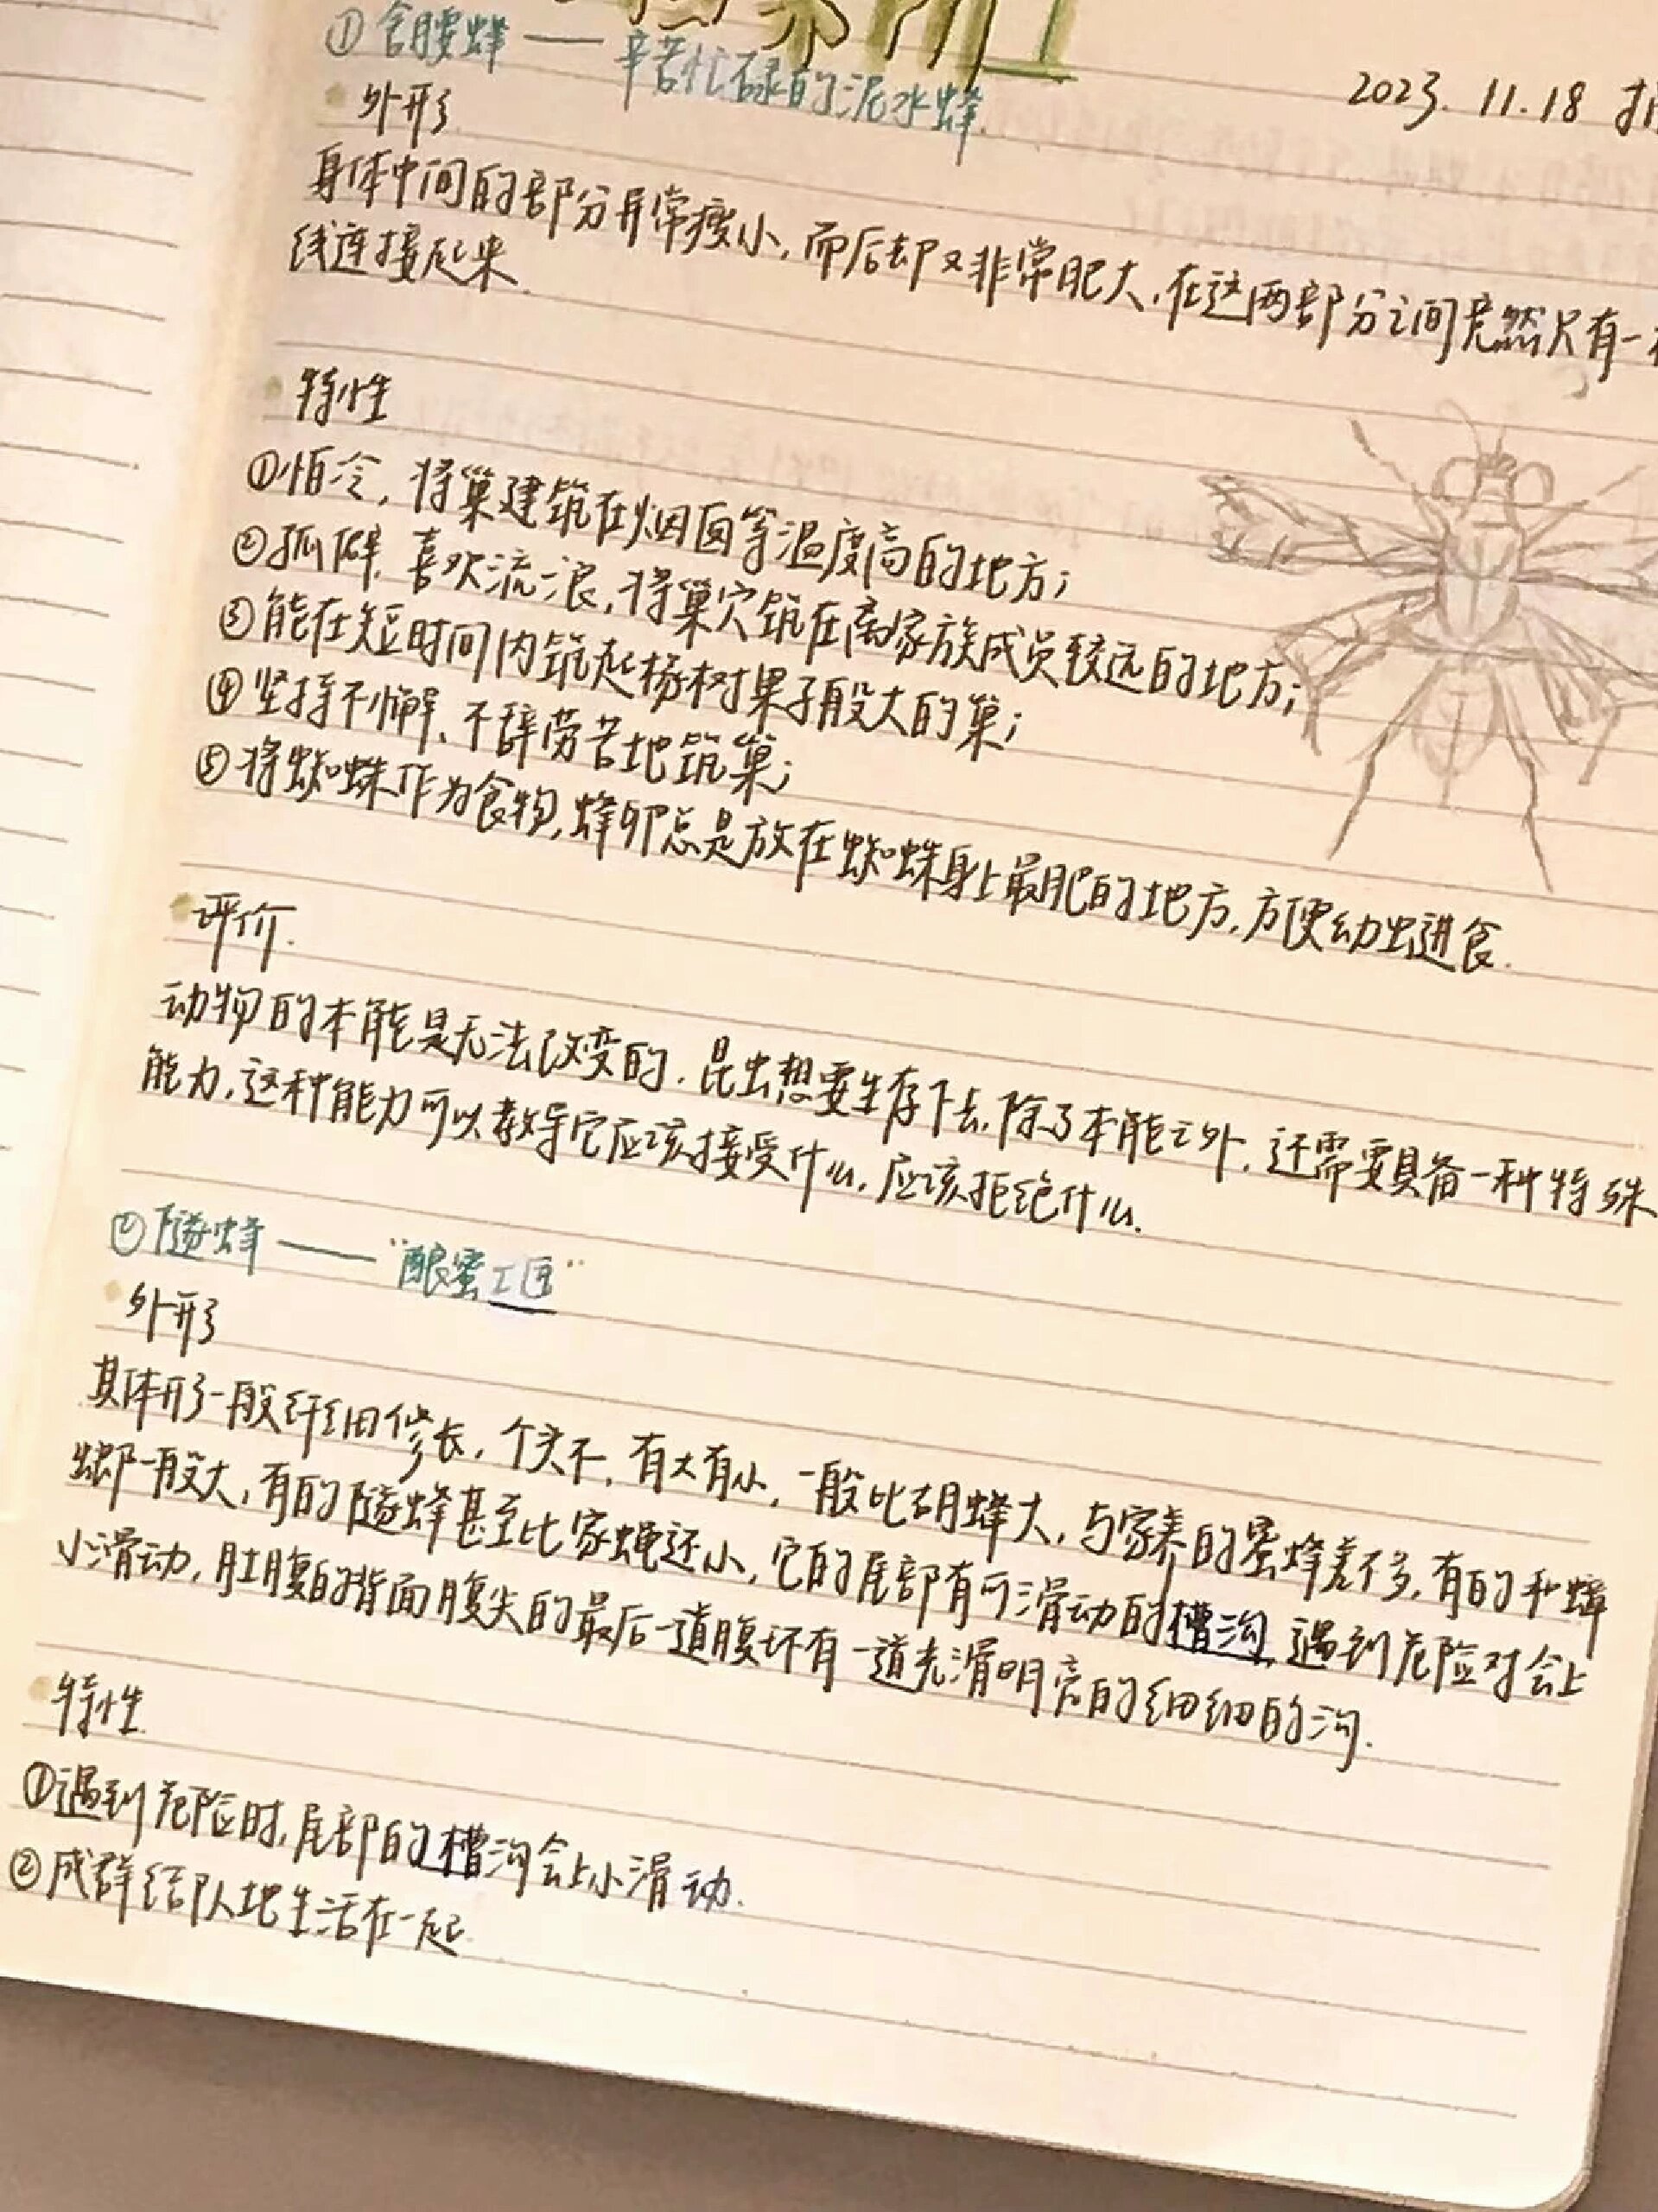 ①舍腰蜂——辛苦忙碌的泥水蜂.
2023. 11.18
外形
身体中间的部分异常瘦小,而后却又非常肥大,在这两部分之间竟然只有一
线连接起来.
特性
①怕冷,将巢建筑在烟囱等温度高的地方;
②孤僻,喜欢流浪,将巢穴筑在离家族成员较远的地方;
③能在短时间内筑起杨树果子般大的巢;
④坚持不懈、不辞劳苦地筑巢;
⑤将蜘蛛作为食物,蜂卵总是放在蜘蛛身上最肥的地方,方便幼虫进食.
评价.
动物的本能是无法改变的.昆虫想要生存下去,除了本能之外,还需要具备一种特殊
能力,这种能力可以教导它应该接受什么,应该拒绝什么.
②隧蜂——“酿蜜工匠”
外形
其体形一般纤细修长,个头不,有大有小,一般比胡蜂大,与家养的蜜蜂差不多,有的和蟑
螂一般大,有的隧蜂甚至比家蝇还小,它的尾部有可滑动的槽沟,遇到危险对会上
小滑动,肚腹的背面腹尖的最后一道腹环有一道光滑明亮的细细的沟.
特性
①遇到危险时,尾部的槽沟会上小滑动.
②成群结队地生活在一起.